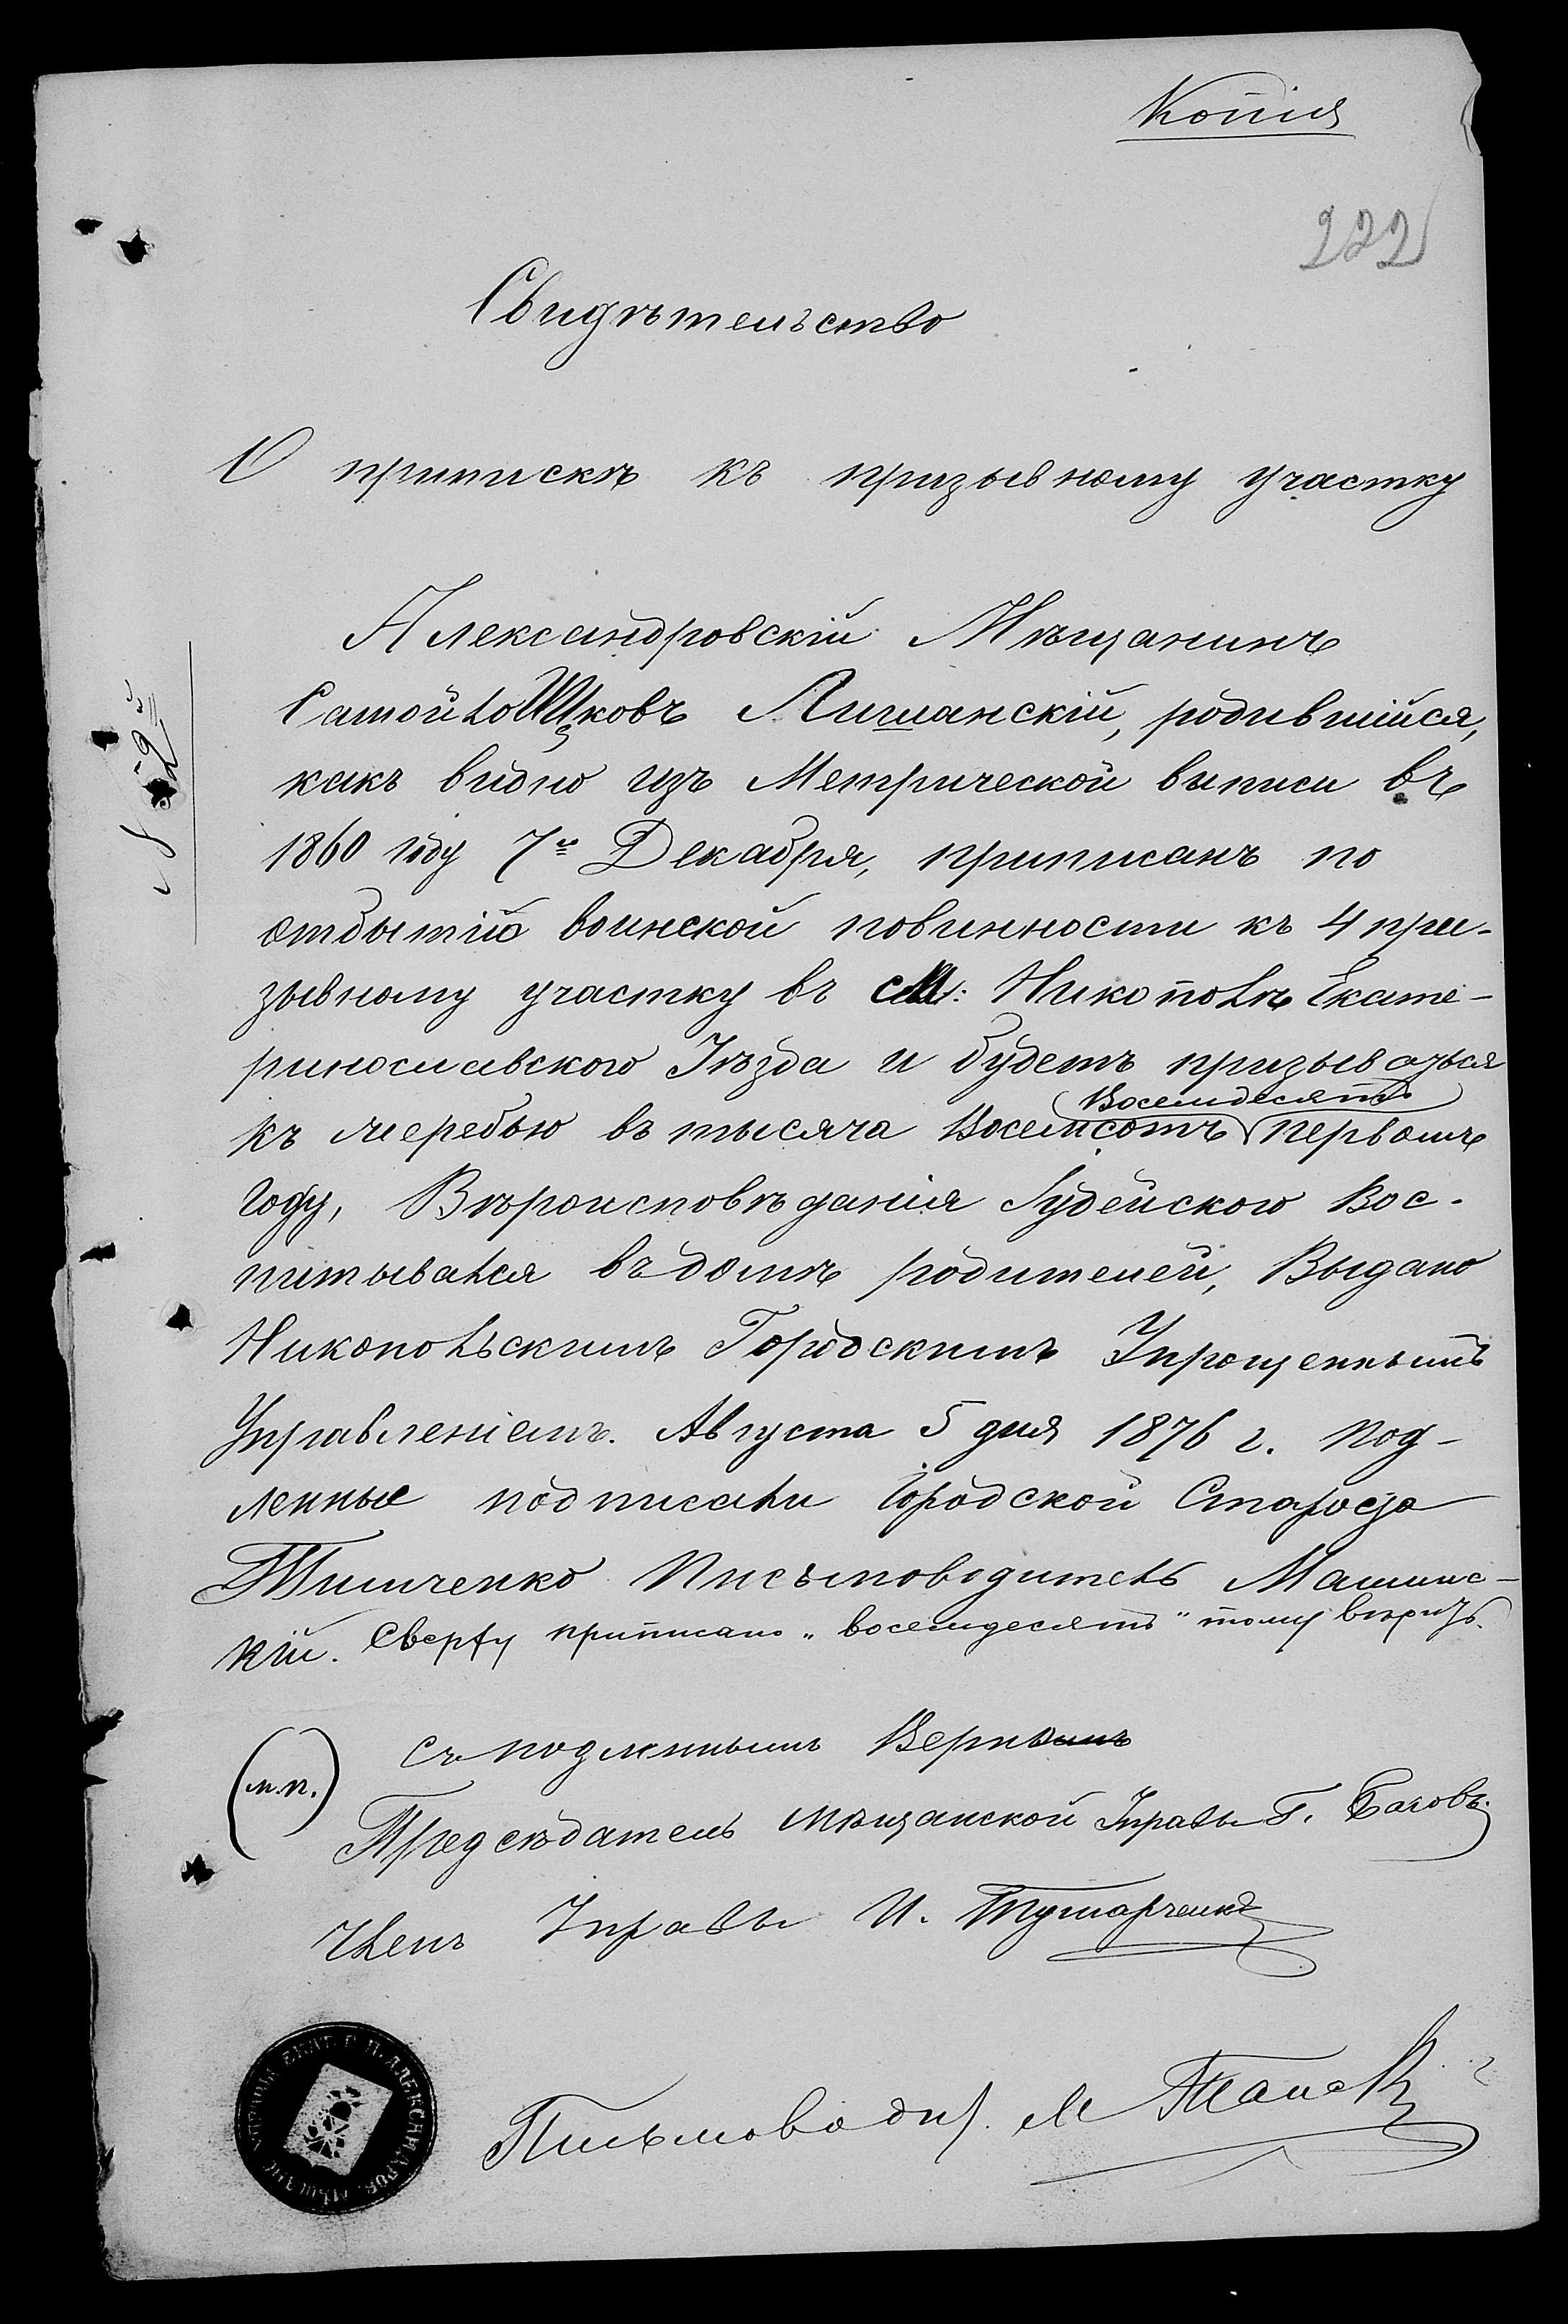 Копія
222
Свидѣтельство
О припискѣ къ призывному участку
Александровскій Мѣщанинъ
Самойло Ицковъ Лишанскій, родившійся,
какъ видно изъ Метрической выписи въ
1860 году 7го Декабря, приписанъ по
отбытію воинской повинности къ 4 при-
зывному участку въ м: Никополѣ Екате-
ринославского Уѣзда и будетъ призыватся
Восемдесятъ
къ жеребью въ тысяча Восемсотъ первомъ
году, Вѣроисповѣданія Іудейского Вос-
питывался въ домѣ родителей, Выдано
Никопольскимъ Городскимъ Упрощеннымъ
Управленіемъ. Августа 5 дня 1876 г. Под-
ленные подписали Городской Староста
Тимченко Письмоводитель Машинс-
кій. Сверху приписано „восемдесятъ" тому вѣрить.
Съ подленнымъ Верно
(м.п.)
Предсѣдатель мѣщанской Управы Г. Баговъ
Членъ Управы И.
Письмоводит. М
№ 52й